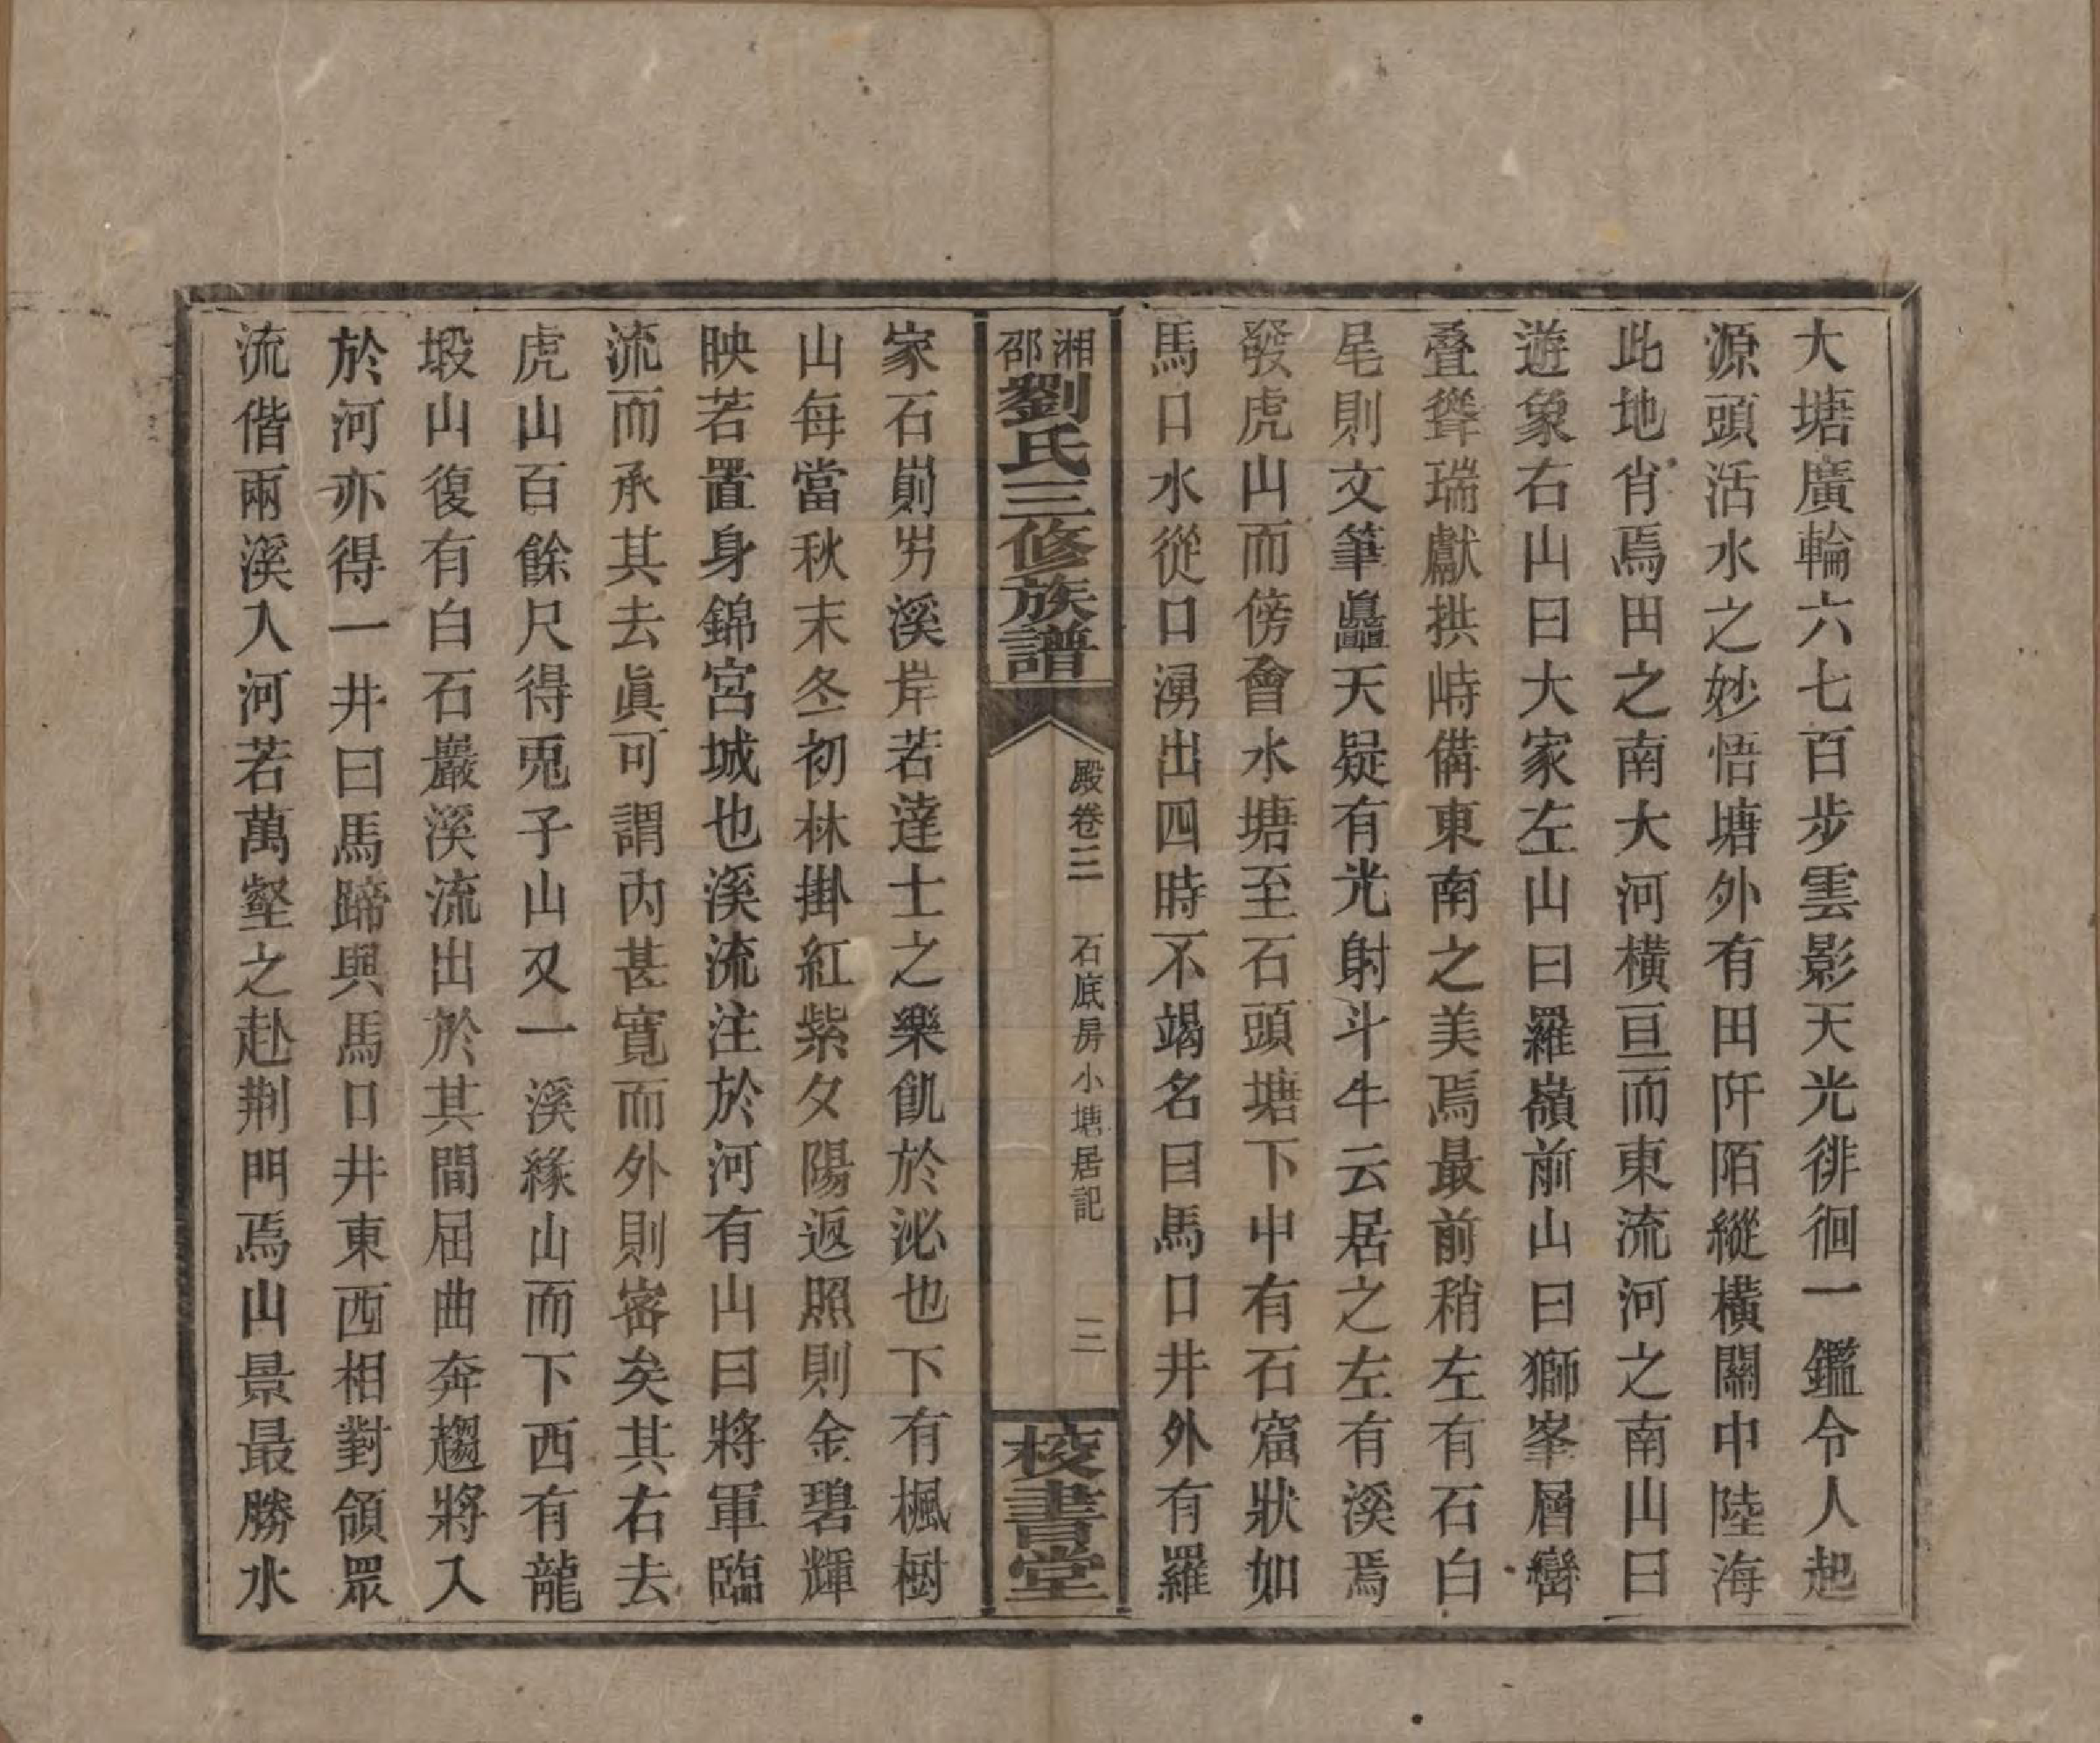 大塘廣輪六七百步雲影天光徘徊一鑑令人起
源頭活水之妙悟塘外有田阡陌縱橫關中陸海
此地肖焉田之南大河橫亘而東流河之南山曰
遊象右山曰大家左山曰羅嶺前山曰獅峯層巒
疊聳瑞獻拱峙備東南之美焉最前稍左有石白
尾則文筆矗天疑有光射斗牛云居之左有溪焉
發虎山而傍會水塘至石頭塘下中有石窟狀如
馬口水從口湧出四時不竭名曰馬口井外有羅
湘邵劉氏三修族譜
殿卷三 石底房小塘居記 三
校書堂
家石崱屴溪岸若達士之樂飢於泌也下有楓樹
山每當秋末冬初林掛紅紫夕陽返照則金碧輝
映若置身錦宮城也溪流注於河有山曰將軍臨
流而承其去眞可謂內甚寬而外則密矣其右去
虎山百餘尺得兎子山又一溪緣山而下西有龍
塅山復有白石巖溪流出於其間屈曲奔趨將入
於河亦得一井曰馬蹄與馬口井東西相對領眾
流偕兩溪入河若萬壑之赴荆門焉山景最勝水